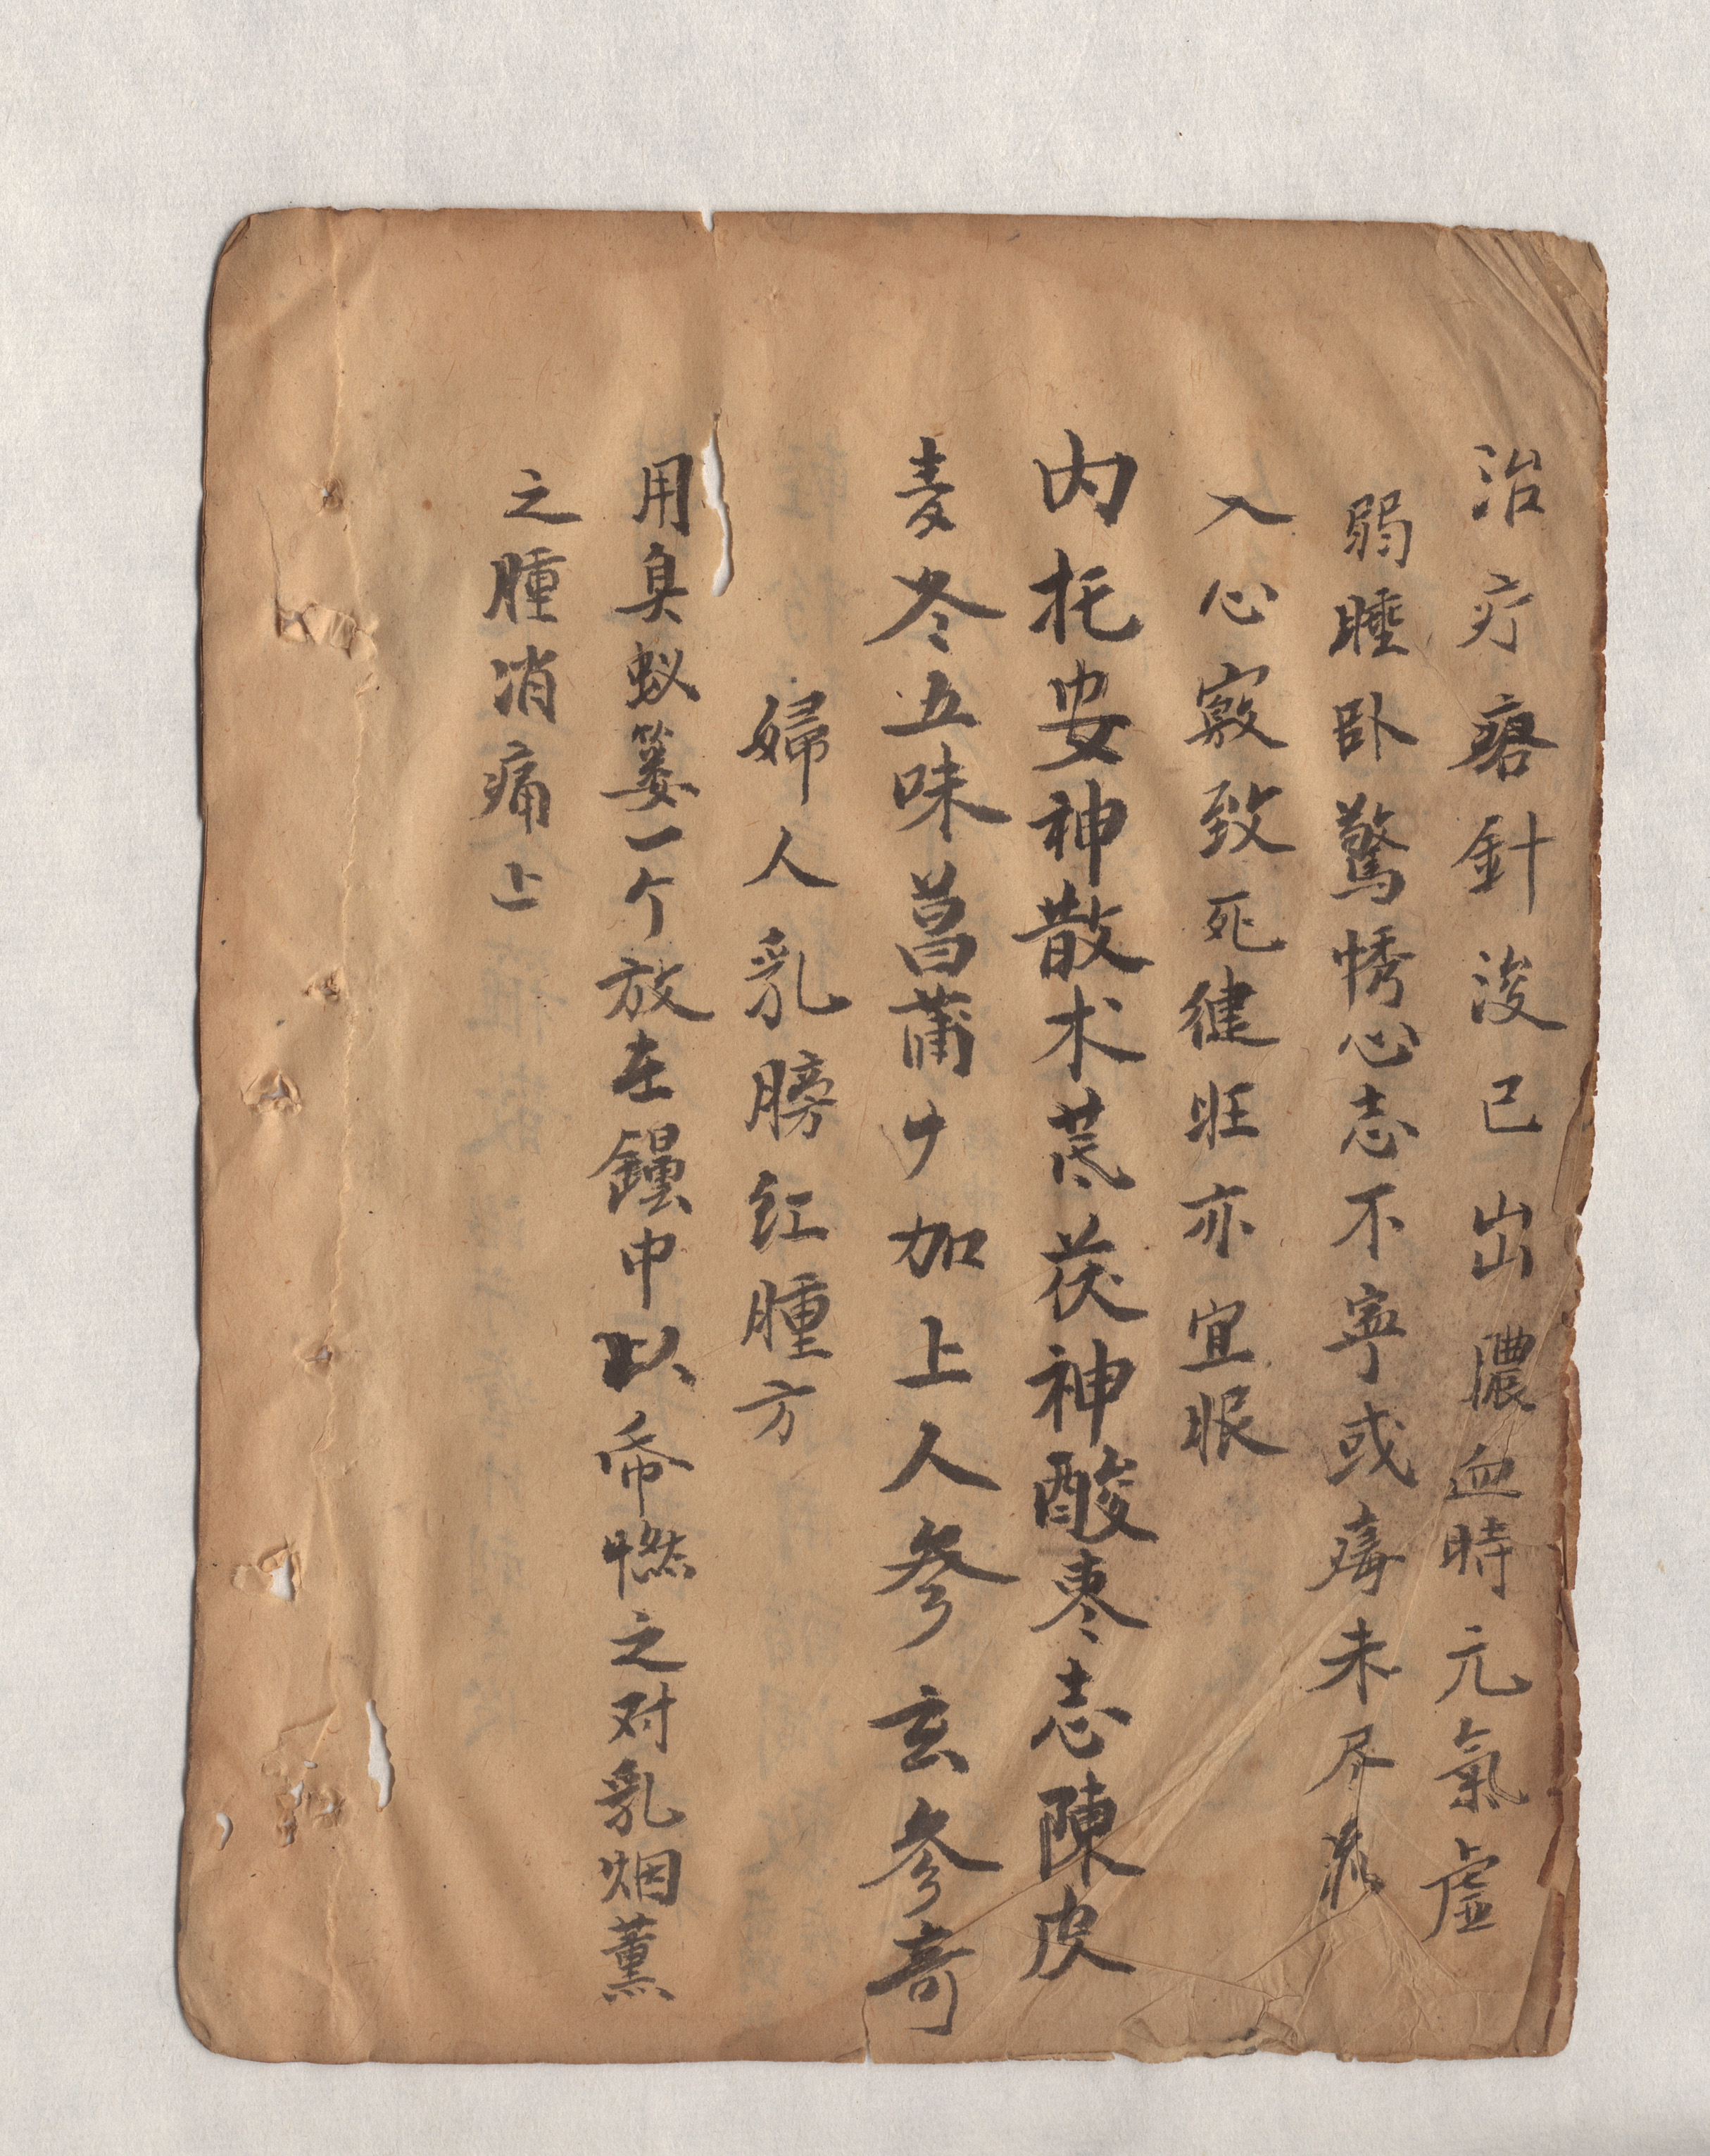 治疔瘡針浚已出膿血時元氣虛
弱睡卧驚悸心志不寧或毒未尽流
入心竅致死健旺亦宜服
内托安神散术芪茯神酸枣志陳皮
麦冬五味菖蒲少加上人参玄参奇
婦人乳膀红腫方
用臭蚁篓一个放在鑵中以希燃之对乳烟薰
之腫消痛止